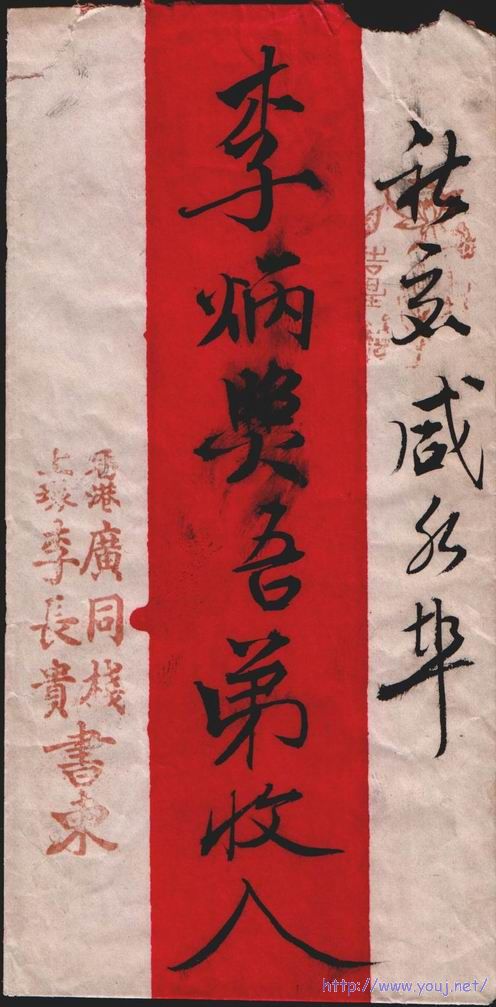 交咸水埠
李炳吾弟收入
香港廣同棧
上環李長貴
書柬
http://www.youj.net/